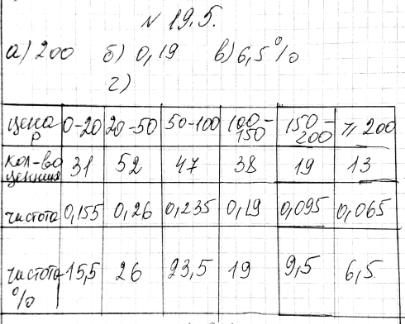 № 19.5.
а) 200 б) 0,19 в) 6,5%
г)
цена р 0-20 20-50 50-100 100-150 150-200 ≥ 200
кол-во ценников 31 52 47 38 19 13
частота 0,155 0,26 0,235 0,19 0,095 0,065
частота % 15,5 26 23,5 19 9,5 6,5